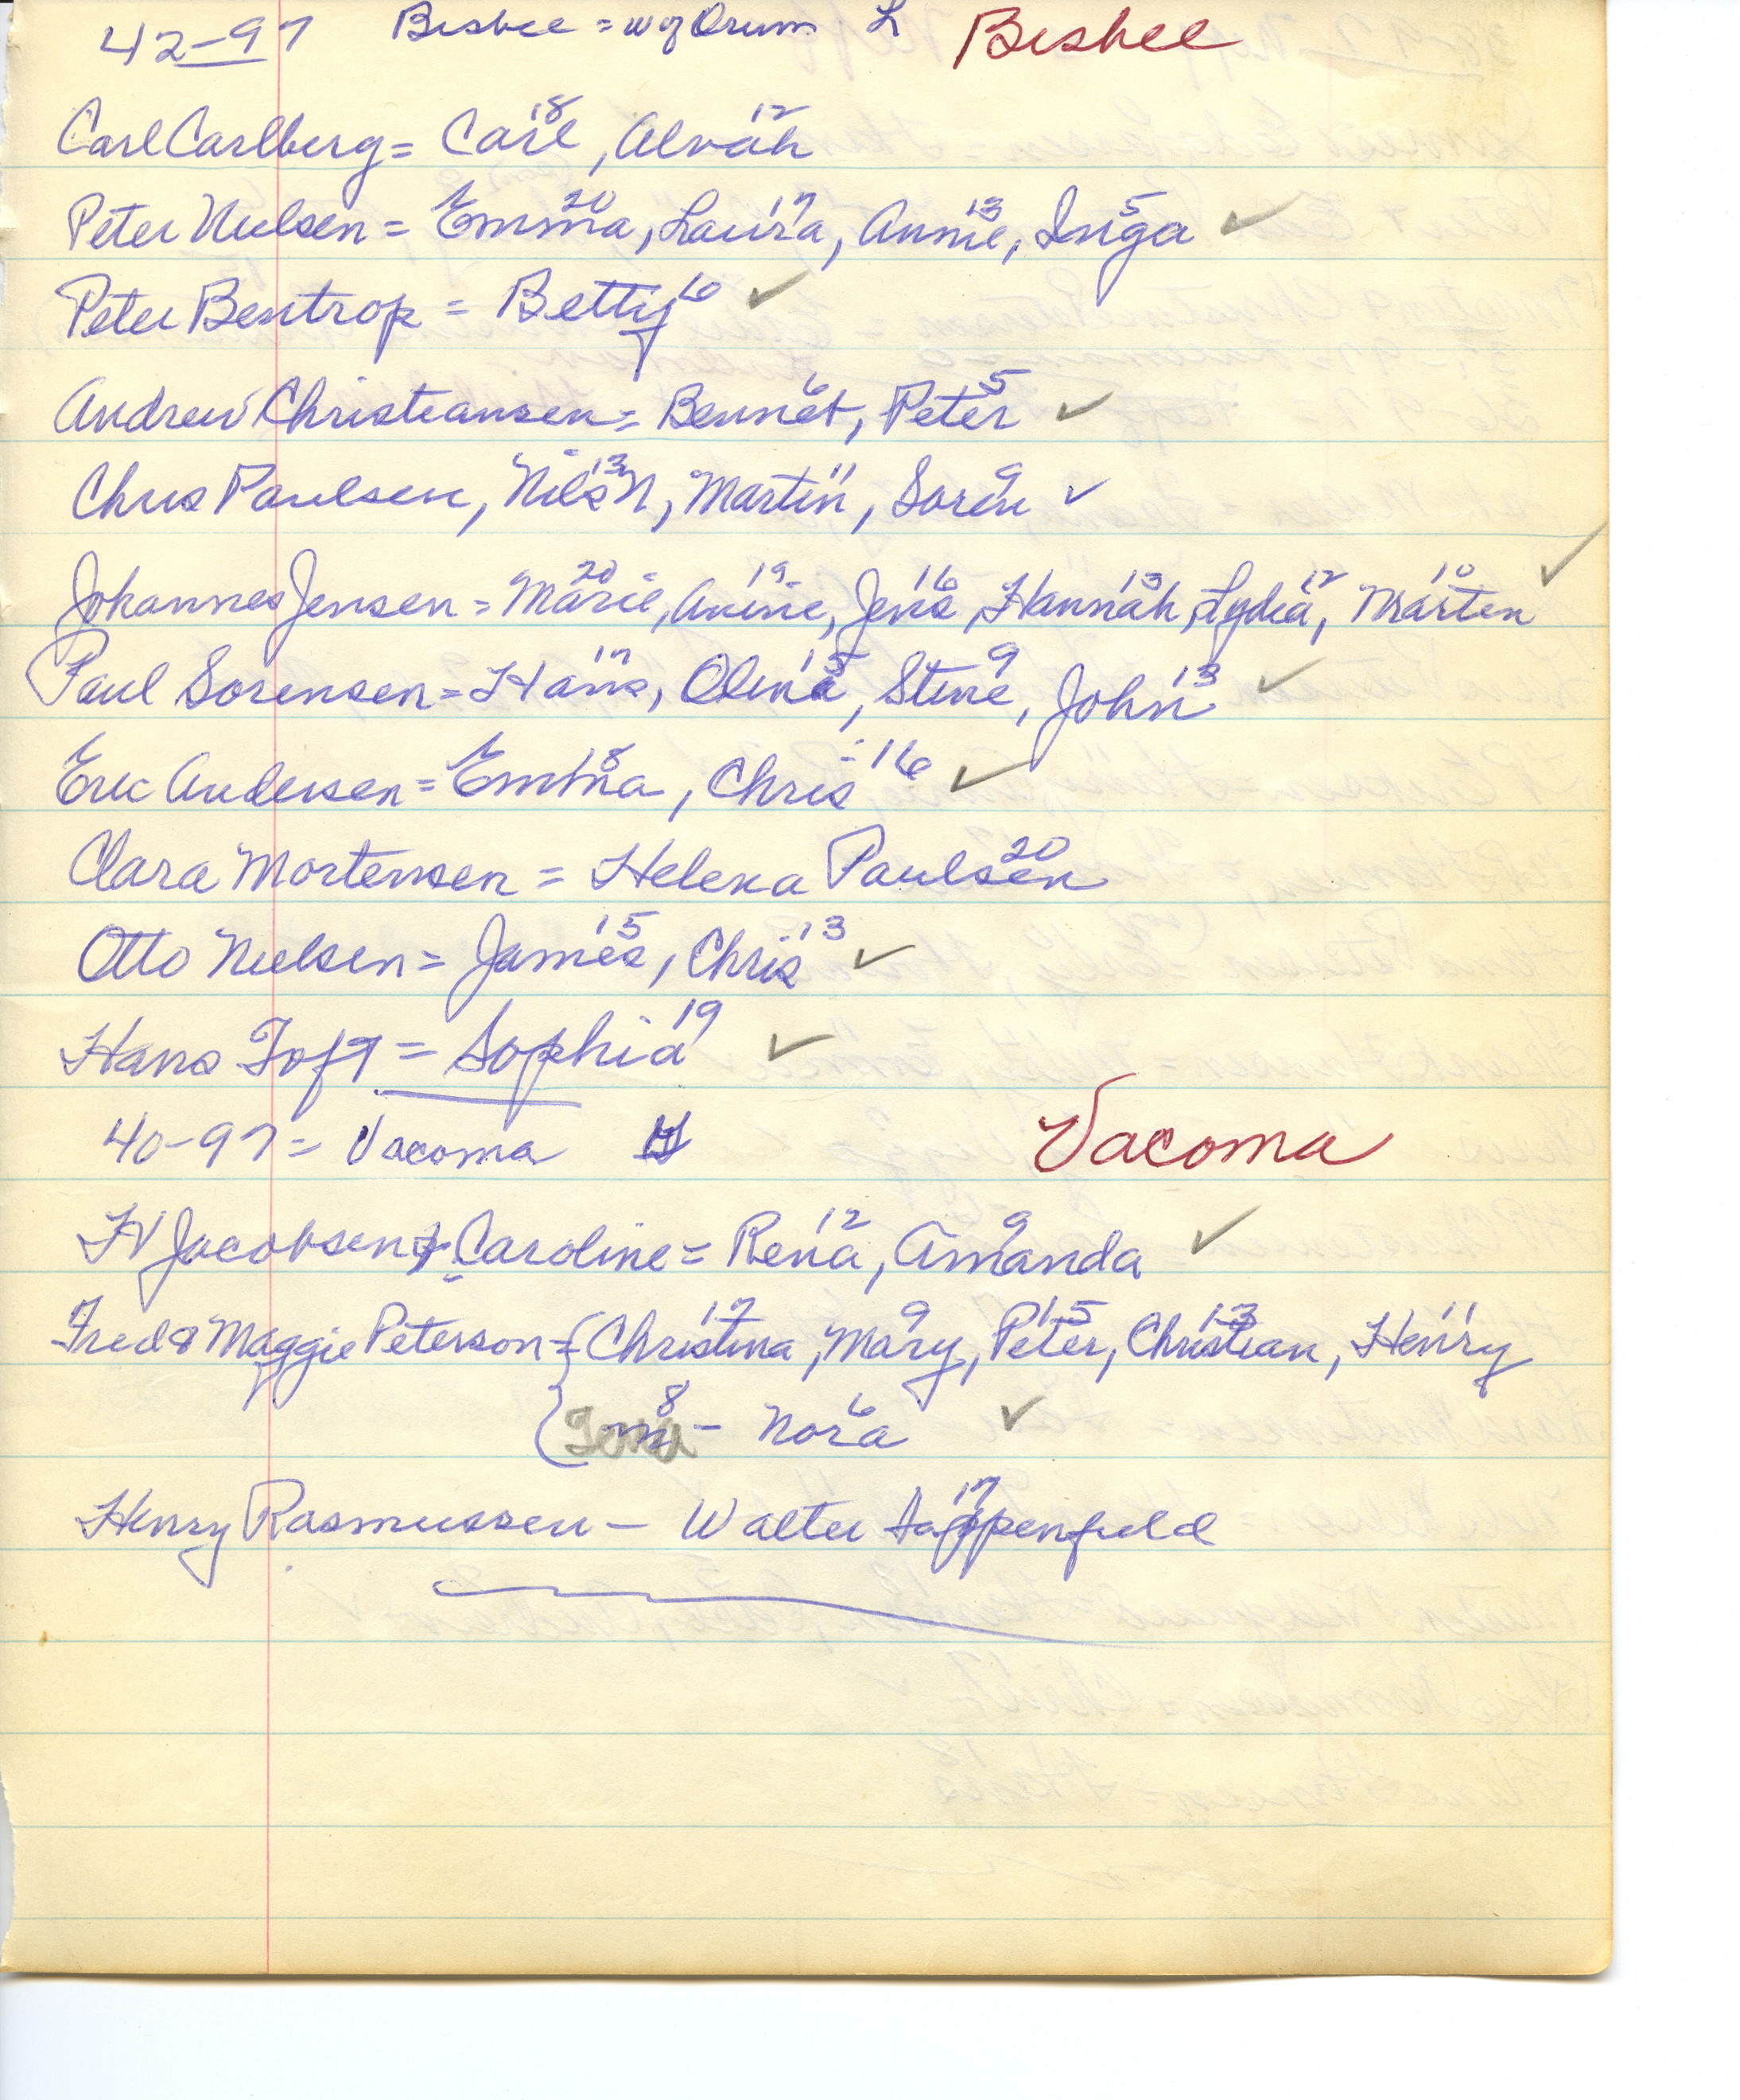 42-97 Bisbee = w of Orum L Bisbee
18 12
Carl Carlberg = Carl, Alvah
20 17 13 5
Peter Nielsen = Emma, Laura, Annie, Inga ✓
Peter Bentrop = Betty 6 ✓
6 5
Andrew Christiansen = Bennet, Peter ✓
13 11 9
Chris Paulsen, Nils N, Martin, Soren ✓
20 19 16 13 12 10
Johannes Jensen = Marie, Anine, Jens, Hannah, Lydia, Marten ✓
17 15 9 13
Paul Sorensen = Hans, Olena, Stine, John ✓
8 16
Eric Andersen = Emma, Chris ✓
20
Clara Mortensen = Helena Paulsen
15 13
Otto Nielsen = James, Chris ✓
19
Hans Toft = Sophia ✓
40-97 = Vacoma Vacoma
12 9
IV Jacobsen & Caroline = Rena, Amanda ✓
17 9 15 13 11
Fred & Maggie Peterson = { Christina, Mary, Peter, Christian, Henry
8 6
{ - Nora ✓
17
Henry Rasmussen - Walter Sappenfield